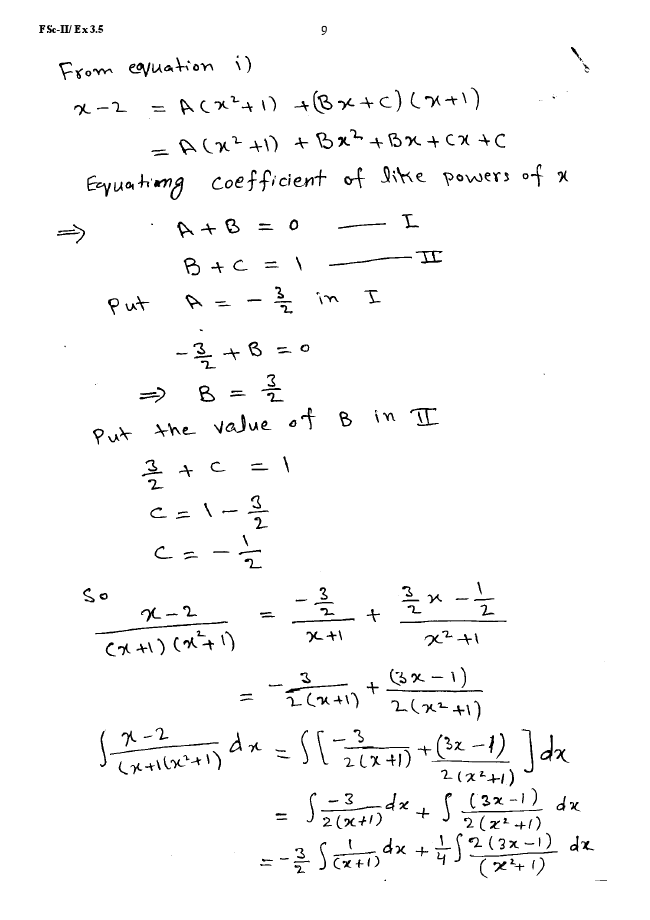 FSc-II/ Ex 3.5
9
From equation i)
x-2 = A(x²+1) +(Bx+C)(x+1)
= A(x²+1) + Bx² + Bx + Cx + C
Equationg coefficient of like powers of x
⇒ A + B = 0 —— I
B + C = 1 ——— II
Put A = - 3/2 in I
- 3/2 + B = 0
⇒ B = 3/2
Put the value of B in II
3/2 + C = 1
C = 1 - 3/2
C = - 1/2
So (x-2)/((x+1)(x²+1)) = (-3/2)/(x+1) + (3/2 x - 1/2)/(x²+1)
= - 3/(2(x+1)) + (3x-1)/(2(x²+1))
∫ (x-2)/((x+1(x²+1) dx = ∫ [ -3/(2(x+1)) + (3x-1)/(2(x²+1)) ] dx
= ∫ -3/(2(x+1)) dx + ∫ (3x-1)/(2(x²+1)) dx
= - 3/2 ∫ 1/(x+1) dx + 1/4 ∫ 2(3x-1)/(x²+1) dx